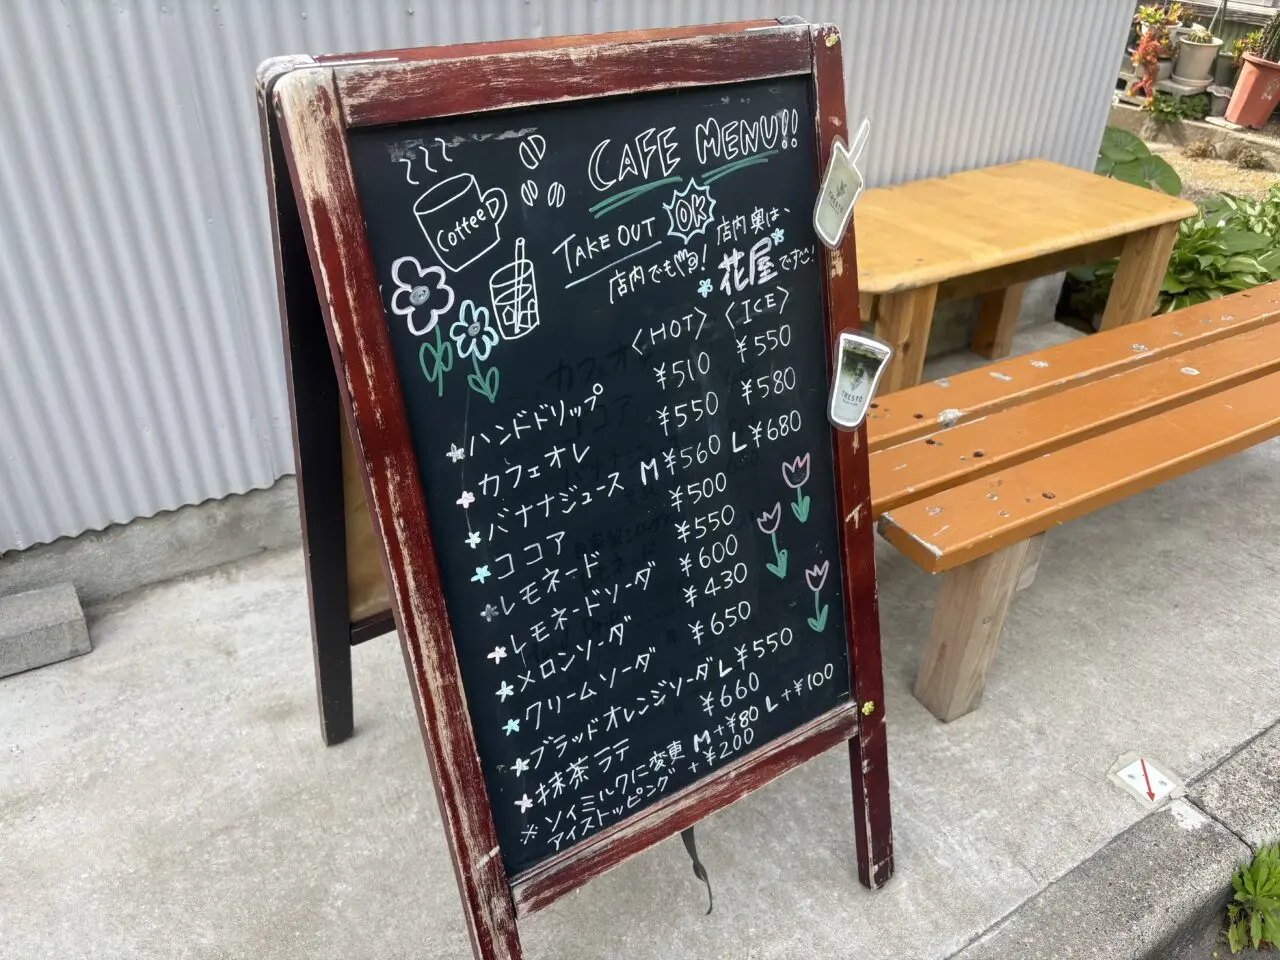 Coffee
CAFE MENU!!
TAKE OUT OK
店内でも
店内奥は、
花屋です!
〈HOT〉 〈ICE〉
ハンドドリップ ¥510 ¥550
カフェオレ ¥550 ¥580
バナナジュース M¥560 L¥680
ココア ¥500
レモネード ¥550
レモネードソーダ ¥600
メロンソーダ ¥430
クリームソーダ ¥650
ブラッドオレンジソーダ L¥550
抹茶ラテ ¥660
※ソイミルクに変更 M+¥80 L+¥100
アイストッピング +¥200
TRESTO
TRESTO